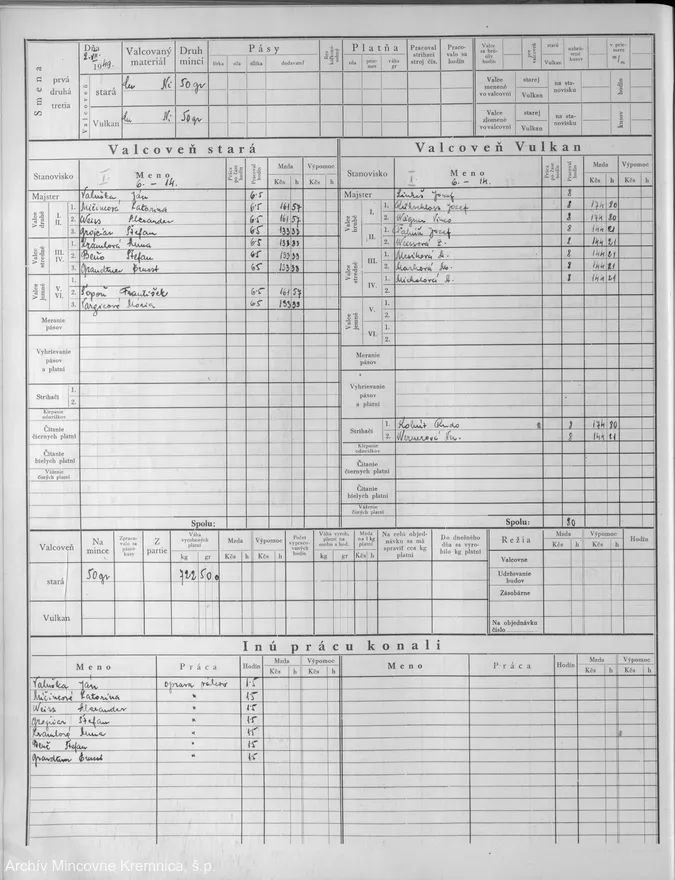 Smena
prvá
druhá
tretia
Dňa
2.VII.
1949.
Valcovaný
materiál
Druh
mincí
Pásy
šírka
sila
dĺžka
dodavateľ
Platňa
sila
prie-
mer
váho
gr
Pracoval
strihací
stroj čís.
Praco-
valo sa
hodín
Valcoveň
stará
Ni
50 gr
Vulkan
Ni
50 gr
Valce
menené
vo valcovni
starej
Vulkan
na sta-
novisku
hodín
Valce
zlomené
vo valcovni
starej
Vulkan
na sta-
novisku
kusov
Valcoveň stará
Stanovisko
I.
Meno
6. – 14.
Pracoval
hodín
Mzda
Kčs
h
Výpomoc
Kčs
h
Majster
Valuška Ján
6·5
Valce
hrubé
I.
II.
1.
Mičincová Katarina
6·5
161 57
2.
Weiss Alexander
6·5
161 57
3.
Grojciar Štefan
6·5
133 33
Valce
stredné
III.
IV.
1.
Kramlová Anna
6·5
133 33
2.
Beňo Štefan
6·5
133 33
3.
Grandtner Ernest
6·5
133 33
Valce
jemné
V.
VI.
1.
2.
Topoň František
6·5
161 57
3.
Vargicová Maria
6·5
133 33
Meranie
pásov
Vyhrievanie
pásov
a platní
Strihači
1.
2.
Klepanie
odstrižkov
Čítanie
čiernych platní
Čítanie
bielych platní
Váženie
čistých platní
Spolu:
Valcoveň Vulkan
Stanovisko
I.
Meno
6. – 14.
Pracoval
hodín
Mzda
Kčs
h
Výpomoc
Kčs
h
Majster
Jozef
8
Valce
hrubé
I.
1.
Jozef
8
174 80
2.
Wágner Vinco
8
174 80
II.
1.
Jozef
8
144 21
2.
Weissová E.
8
144 21
Valce
stredné
III.
1.
8
144 21
2.
8
144 21
IV.
1.
Micholová
8
144 21
2.
Valce
jemné
V.
1.
2.
VI.
1.
2.
Meranie
pásov
Vyhrievanie
pásov
a platní
Strihači
1.
Rudo
8
174 80
2.
Wernerová
8
144 21
Klepanie
odstrižkov
Čítanie
čiernych platní
Čítanie
bielych platní
Váženie
čistých platní
Spolu:
80
Valcoveň
Na
mince
Zprac-
valo sa
pásov
kusy
Z
partie
Váha
vyrobených
platní
kg
gr
Mzda
Kčs
h
Výpomoc
Kčs
h
Počet
vypraco-
vaných
hodín
Váha vyrob.
platní na
osobu a hod.
kg
gr
Mzda
na 1 kg
platní
Kčs
h
Na celú objed-
návku sa má
spraviť ces kg
platní
Do dnešného
dňa sa vyro-
bilo kg platní
stará
50 gr
722 500
Vulkan
Režia
Mzda
Kčs
h
Výpomoc
Kčs
h
Hodín
Valcovne
Udržovanie
budov
Zásobárne
Na objednávku
číslo
Inú prácu konali
Meno
Práca
Hodín
Mzda
Kčs
h
Výpomoc
Kčs
h
Meno
Práca
Hodín
Mzda
Kčs
h
Výpomoc
Kčs
h
Valuška Ján
oprava valcov
1·5
Mičincová Katarina
"
1·5
Weiss Alexander
"
1·5
Grojciar Štefan
"
1·5
Kramlová Anna
"
1·5
Beňo Štefan
"
1·5
Grandtner Ernest
"
1·5
Archív Mincovne Kremnica, š.p.